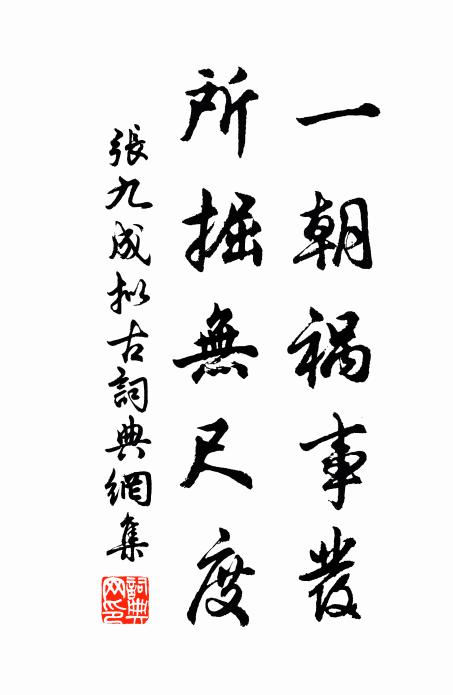 一朝禍事發
所掘無尺度
張九成拟古詞典網集
詞典
網印